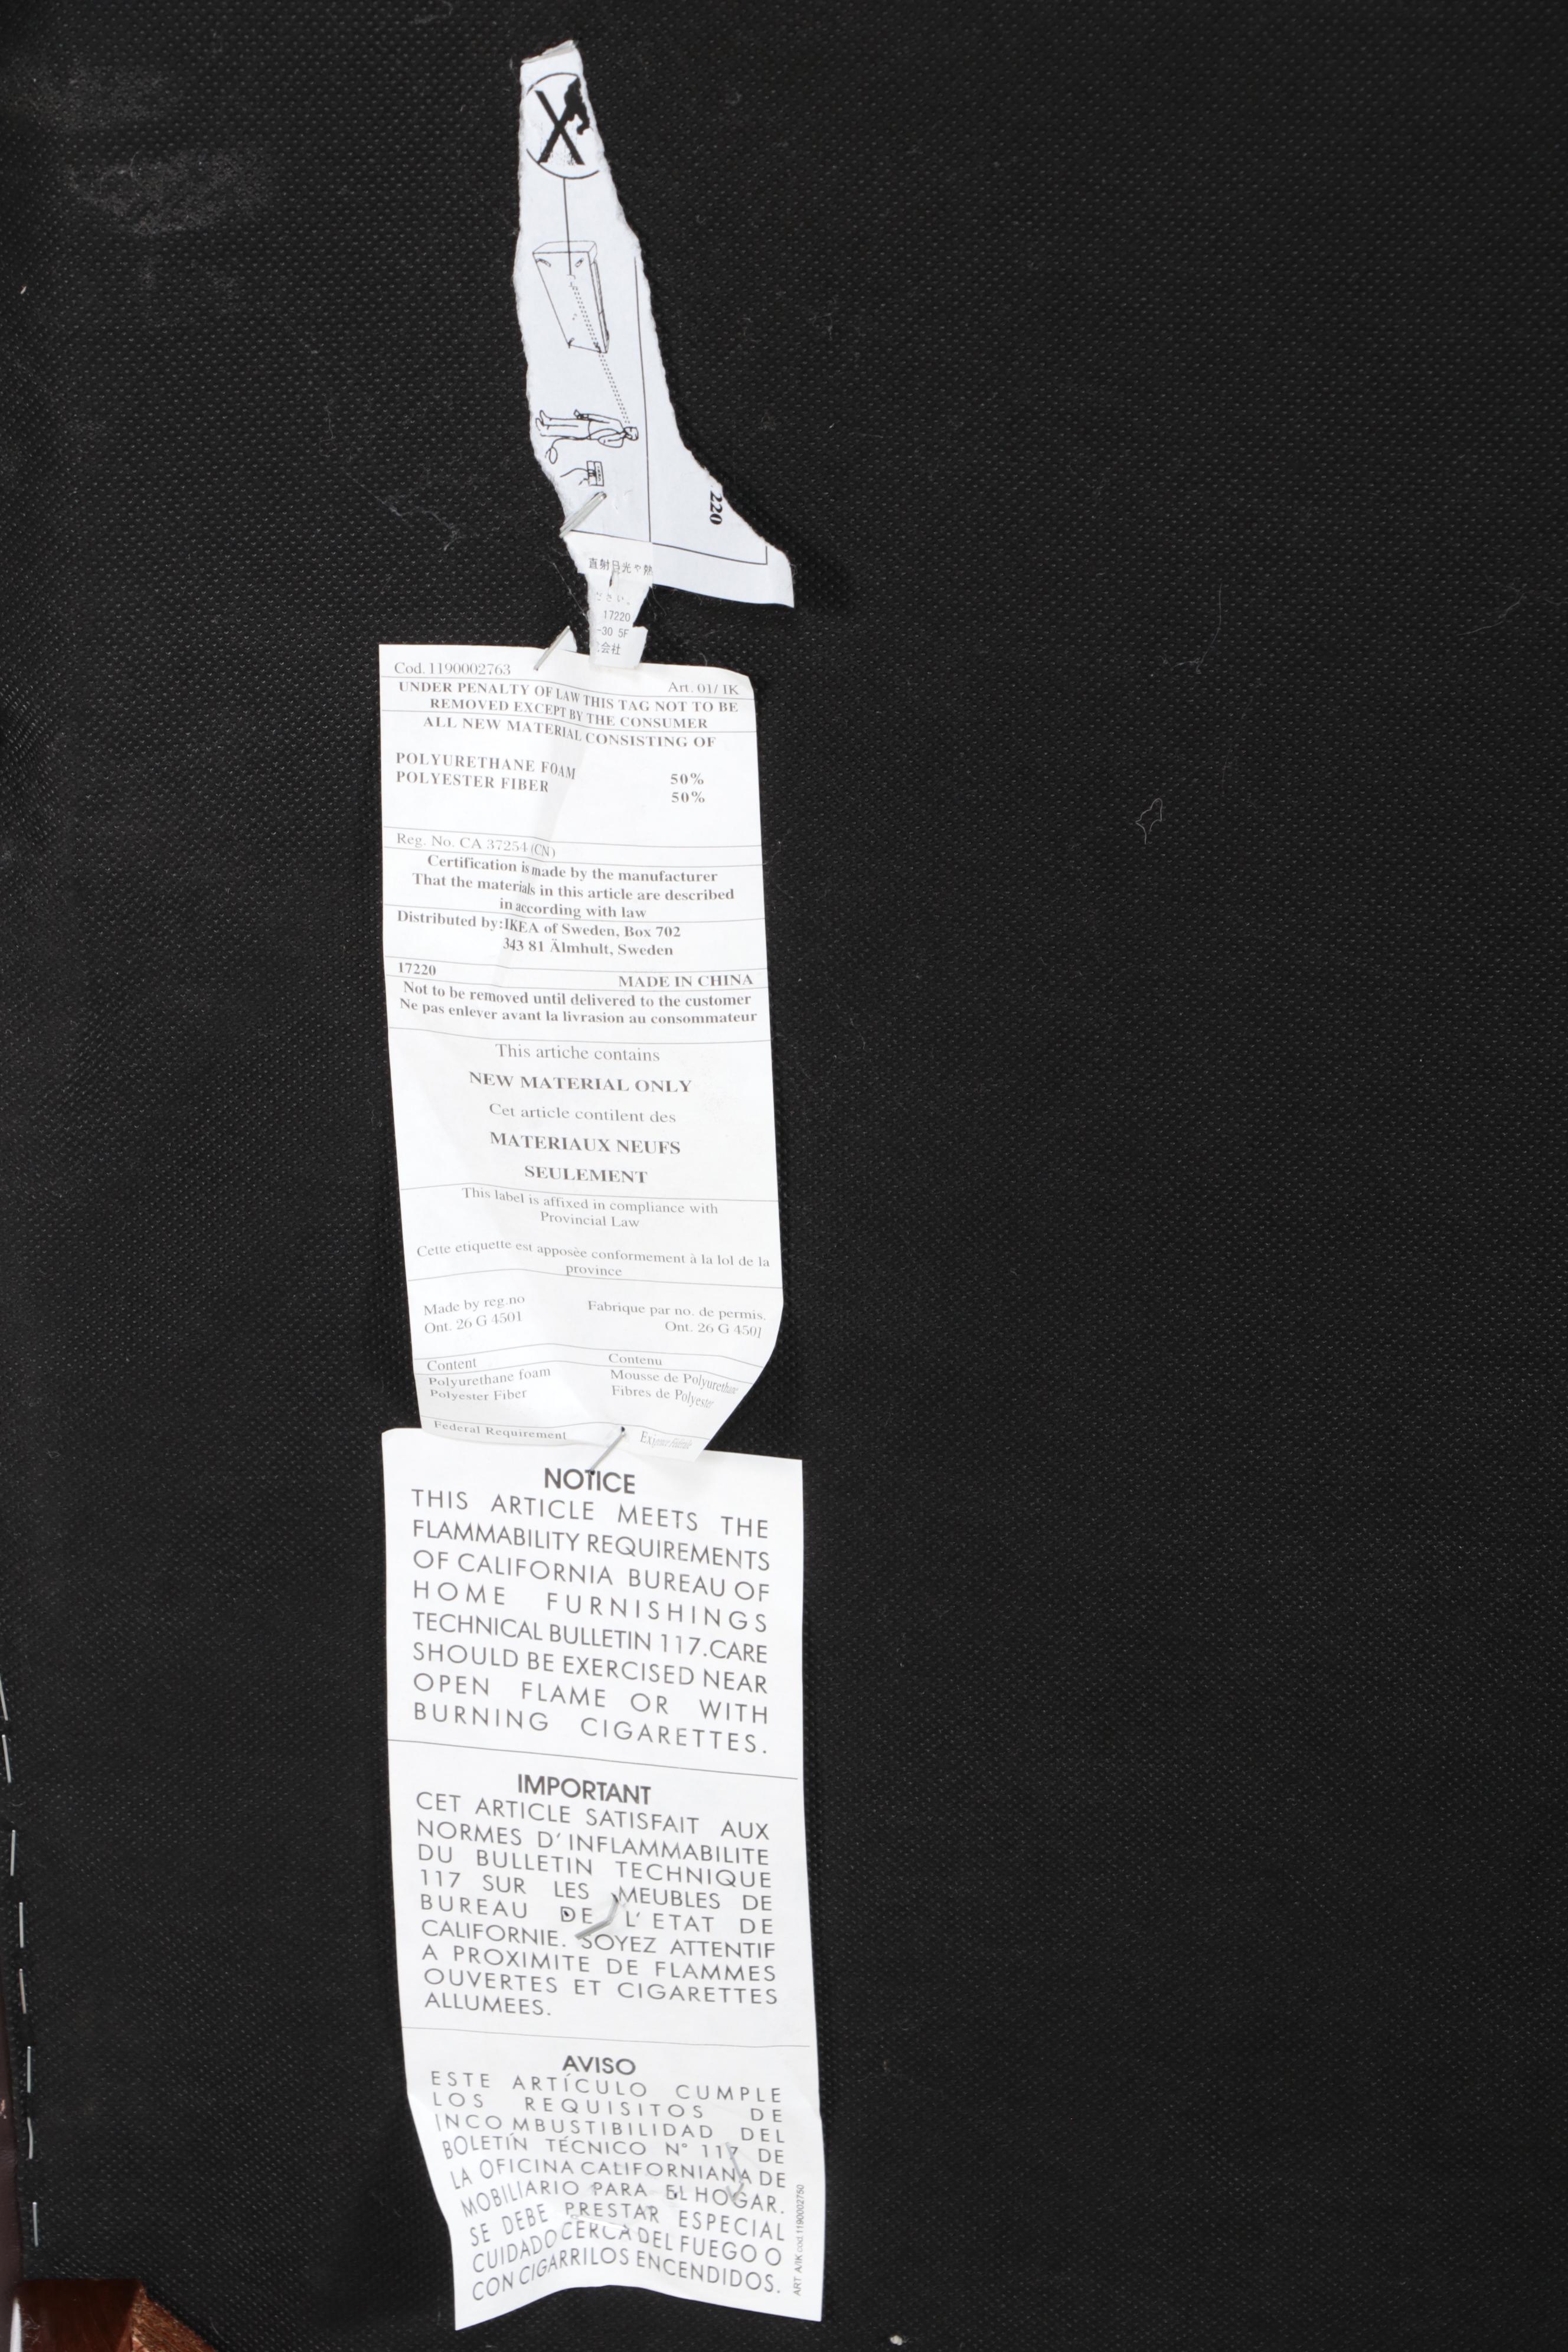 220
直射日光や熱
ださい。
17220
-30 5F
会社
Cod. 1190002763
Art. 01/ IK
UNDER PENALTY OF LAW THIS TAG NOT TO BE
REMOVED EXCEPT BY THE CONSUMER
ALL NEW MATERIAL CONSISTING OF
POLYURETHANE FOAM 50%
POLYESTER FIBER 50%
Reg. No. CA 37254 (CN)
Certification is made by the manufacturer
That the materials in this article are described
in according with law
Distributed by:IKEA of Sweden, Box 702
343 81 Älmhult, Sweden
17220 MADE IN CHINA
Not to be removed until delivered to the customer
Ne pas enlever avant la livrasion au consommateur
This artiche contains
NEW MATERIAL ONLY
Cet article contilent des
MATERIAUX NEUFS
SEULEMENT
This label is affixed in compliance with
Provincial Law
Cette etiquette est apposèe conformement à la lol de la
province
Made by reg.no Fabrique par no. de permis.
Ont. 26 G 4501 Ont. 26 G 4501
Content Contenu
Polyurethane foam Mousse de Polyurethan
Polyester Fiber Fibres de Polyester
Federal Requirement
NOTICE
THIS ARTICLE MEETS THE
FLAMMABILITY REQUIREMENTS
OF CALIFORNIA BUREAU OF
HOME FURNISHINGS
TECHNICAL BULLETIN 117.CARE
SHOULD BE EXERCISED NEAR
OPEN FLAME OR WITH
BURNING CIGARETTES.
IMPORTANT
CET ARTICLE SATISFAIT AUX
NORMES D'INFLAMMABILITE
DU BULLETIN TECHNIQUE
117 SUR LES MEUBLES DE
BUREAU DE L'ETAT DE
CALIFORNIE. SOYEZ ATTENTIF
A PROXIMITE DE FLAMMES
OUVERTES ET CIGARETTES
ALLUMEES.
AVISO
ESTE ARTÍCULO CUMPLE
LOS REQUISITOS DE
INCOMBUSTIBILIDAD DEL
BOLETÍN TÉCNICO N° 117 DE
LA OFICINA CALIFORNIANA DE
MOBILIARIO PARA EL HOGAR.
SE DEBE PRESTAR ESPECIAL
CUIDADO CERCA DEL FUEGO O
CON CIGARRILOS ENCENDIDOS.
ART A/IK cod.1190002750